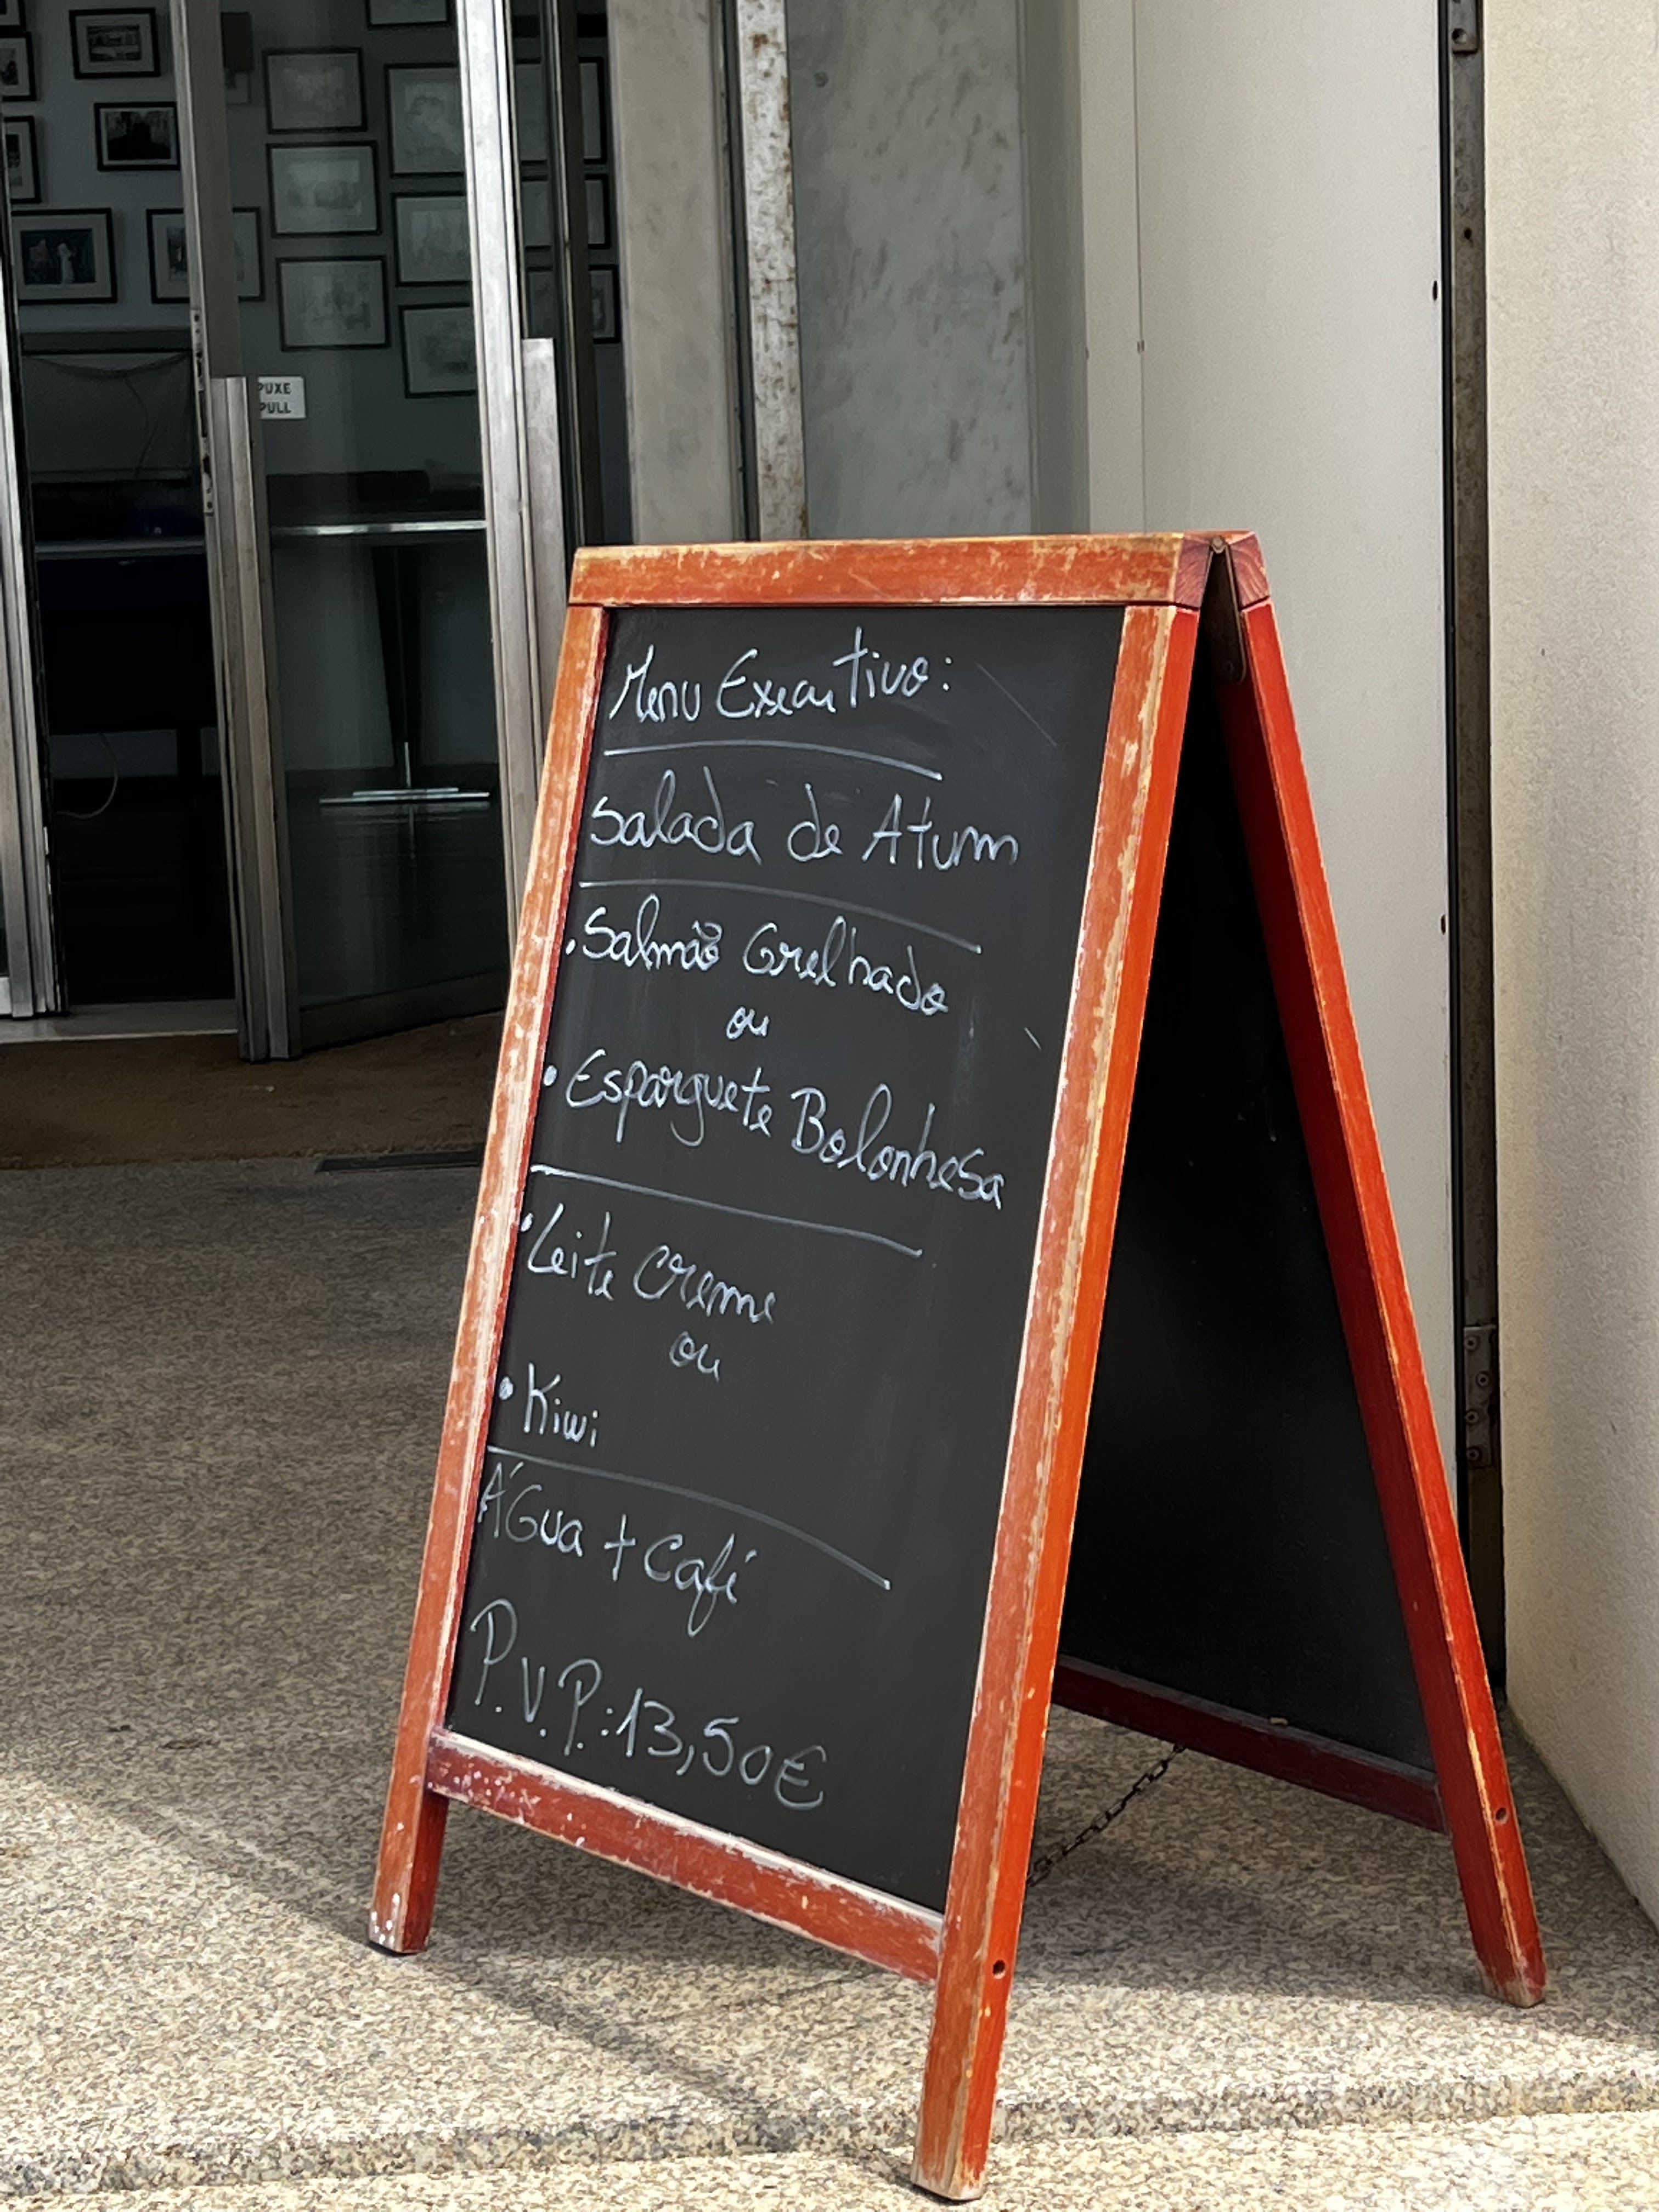 PUXE
PULL
Menu Executivo:
Salada de Atum
. Salmão Grelhado
ou
• Esparguete Bolonhesa
• Leite Creme
ou
• Kiwi
ÁGua + Café
P.V.P.: 13,50€